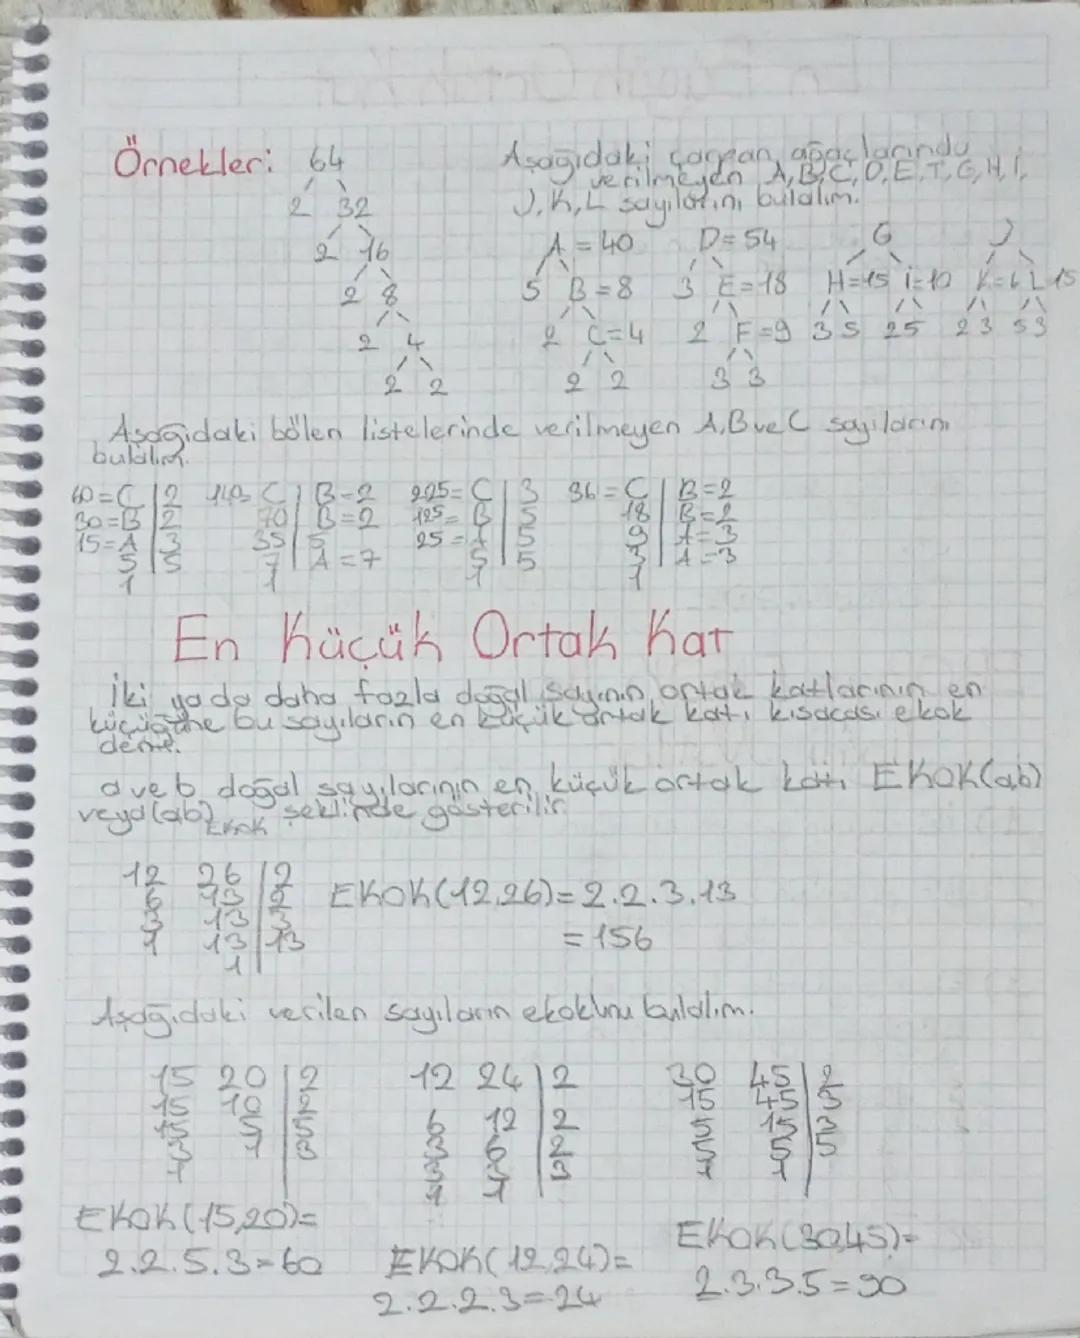 Örnekler: 64
2 32
2 16
2 8
2 4
2 2
Aşağıdaki çarpan ağaçlarında
verilmeyen A,B,C,D,E,T,G,H,İ,
J,K,L sayılarını bulalım.
A = 40 D = 54 G J
5 B = 8 3 E = 18 H=15 İ=10 K=6 L 15
2 C=4 2 F=9 3 5 2 5 2 3 5 3
2 2 3 3
Aşağıdaki bölen listelerinde verilmeyen A,B ve C sayılarını
bulalım.
60=C 2 140= C B=2 225= C 3 36=C B=2
30=B 2 70 B=2 125= B 5 18 B=2
15=A 3 35 5 25=A 5 9 A=3
5 5 7 A=7 5 5 3 A=3
1 1 1 1
En Küçük Ortak Kat
İki ya da daha fazla doğal sayının ortak katlarının en
küçüğüne bu sayıların en küçük ortak katı kısacası ekok
denir.
a ve b doğal sayılarının en küçük ortak katı EKOK(ab)
veya (ab)EKOK şeklinde gösterilir.
12 26 2
6 13 2
3 13 3
1 13 13
1
EKOK(12,26)=2.2.3.13
=156
Aşağıdaki verilen sayıların ekokunu bulalım.
15 20 2
15 10 2
15 5 5
3 1 3
1
EKOK(15,20)=
2.2.5.3=60
12 24 2
6 12 2
3 6 2
3 3 3
1 1
EKOK(12,24)=
2.2.2.3=24
30 45 2
15 45 3
5 15 3
5 5 5
1 1
EKOK(30,45)=
2.3.3.5=90